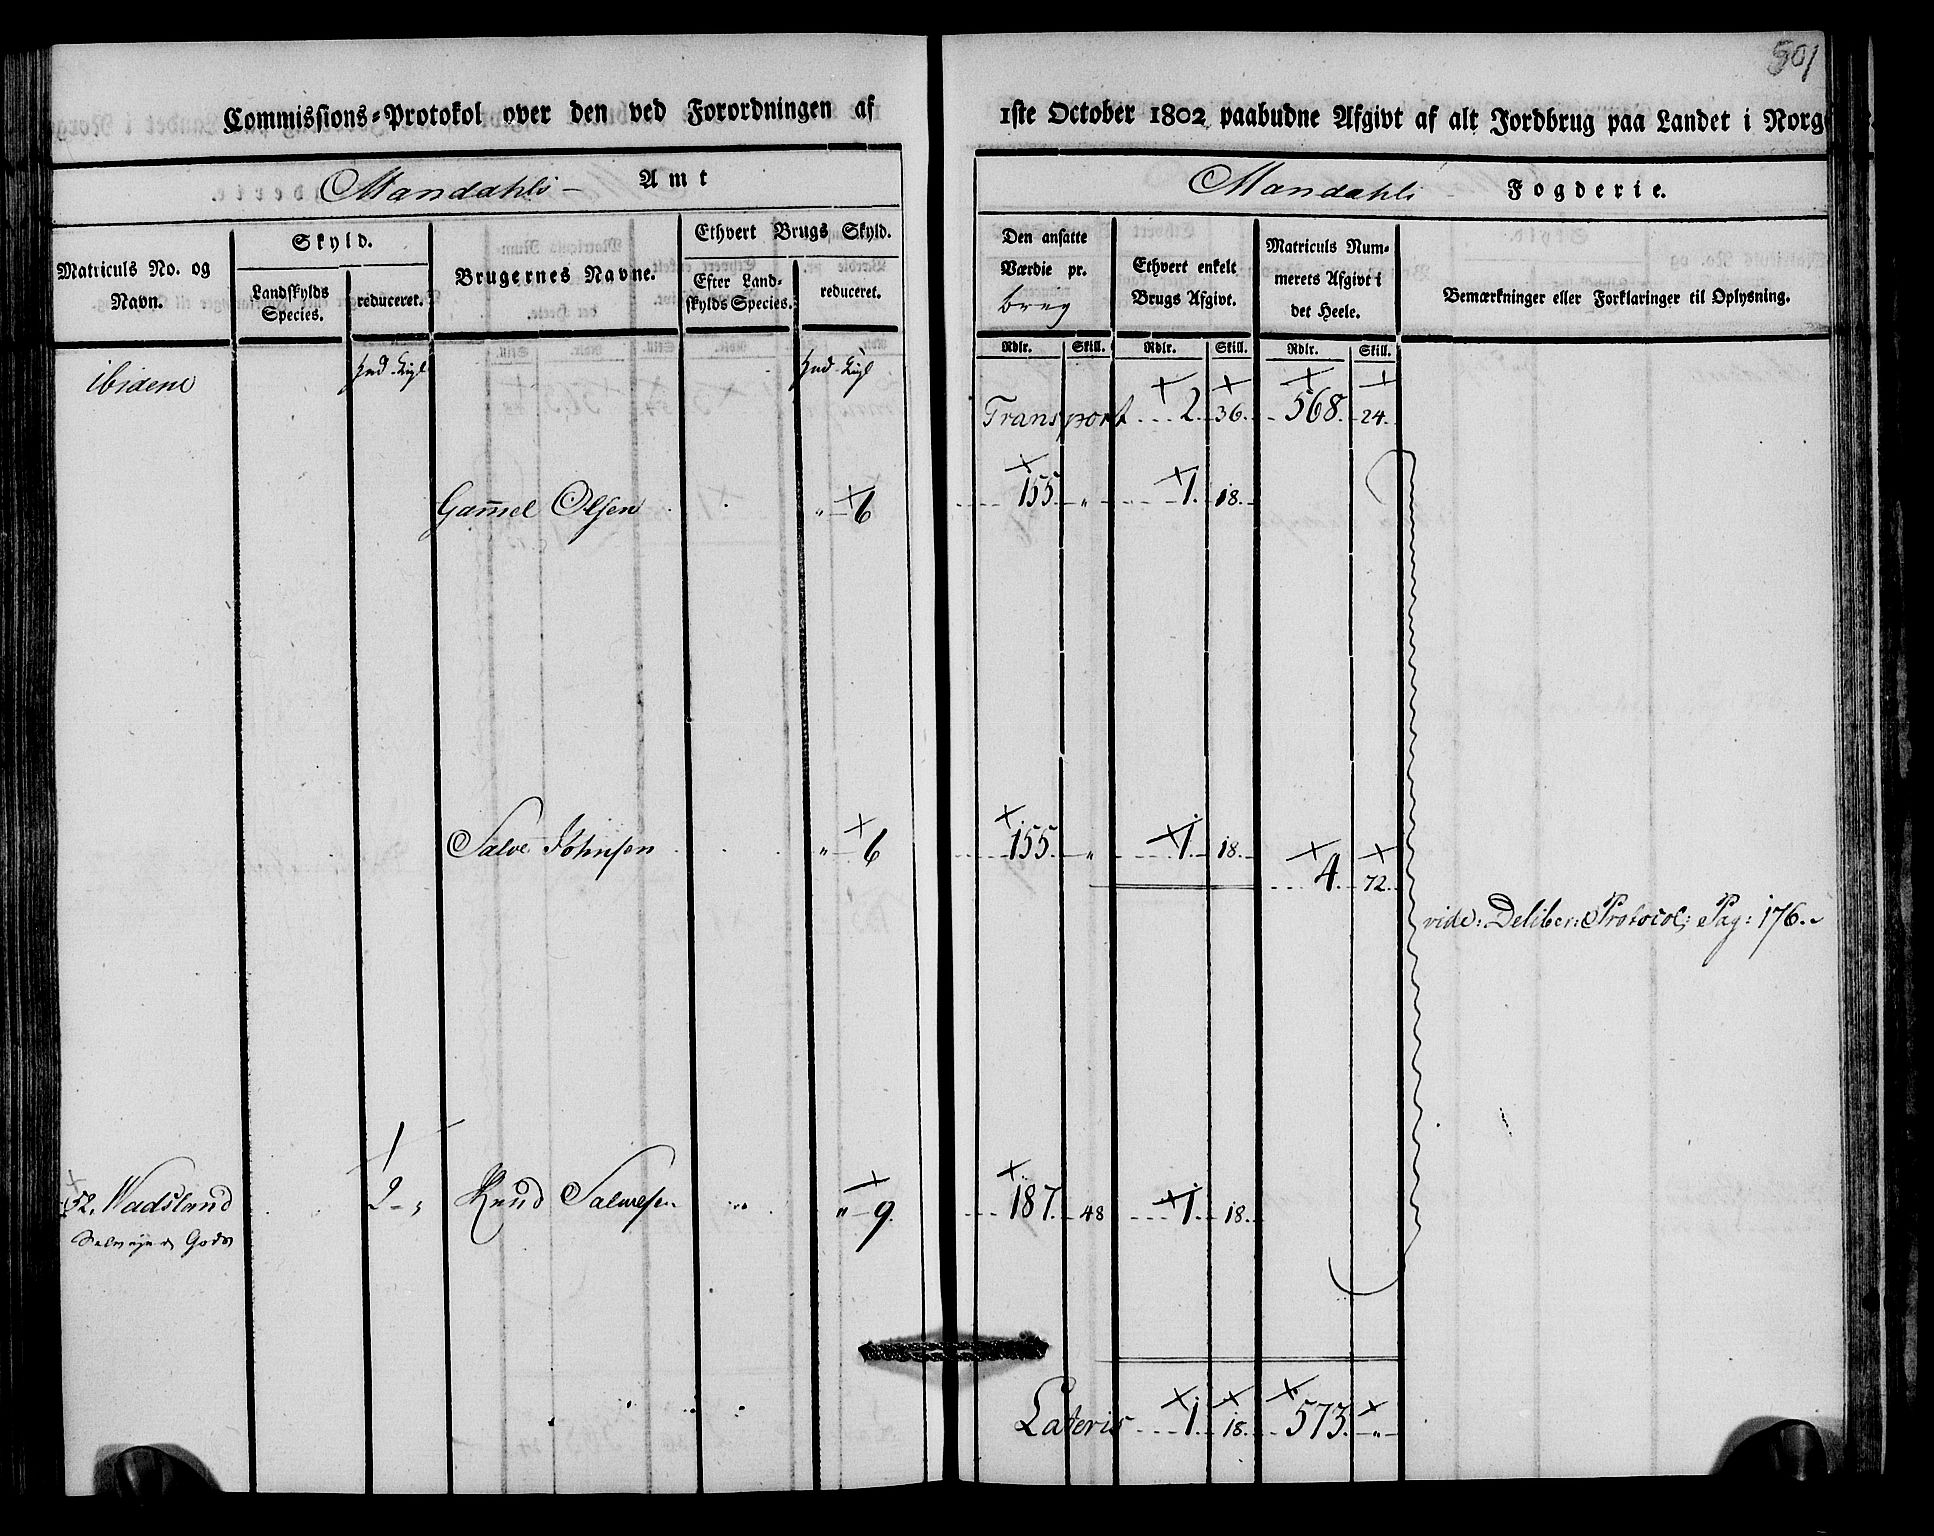 501
Commissions-Protokol over den ved Forordningen af 1ste October 1802 paabudne Afgivt af alt Jordbrug paa Landet i Norge
Mandahls Amt
Mandahls Fogderie.
Matriculs No. og Navn.
Skyld.
Landskylds Species.
reduceret.
Brugernes Navne.
Ethvert Brugs Skyld.
Efter Landskylds Species.
reduceret.
Den ansatte Værdie pr. brug
Ethvert enkelt Brugs Afgivt.
Matriculs Nummerets Afgivt i det Heele.
Bemærkninger eller Forklaringer til Oplysning.
Rdlr. Skill. Rdlr. Skill. Rdlr. Skill.
ibidem Hud Hud
Transport 2. 36. 568. 24.
Gam̅el Olsen " 6 155 " 1. 18.
Salve Johnsen " 6 155 " 1. 18.
4. 72.
vide: Deliber: Protocol: Pag: 176.
52. Wadsland 2 - " Knud Salvesen " 9. 187. 48 1. 18.
Selvejende Gods
Lateris 1. 18. 573. "